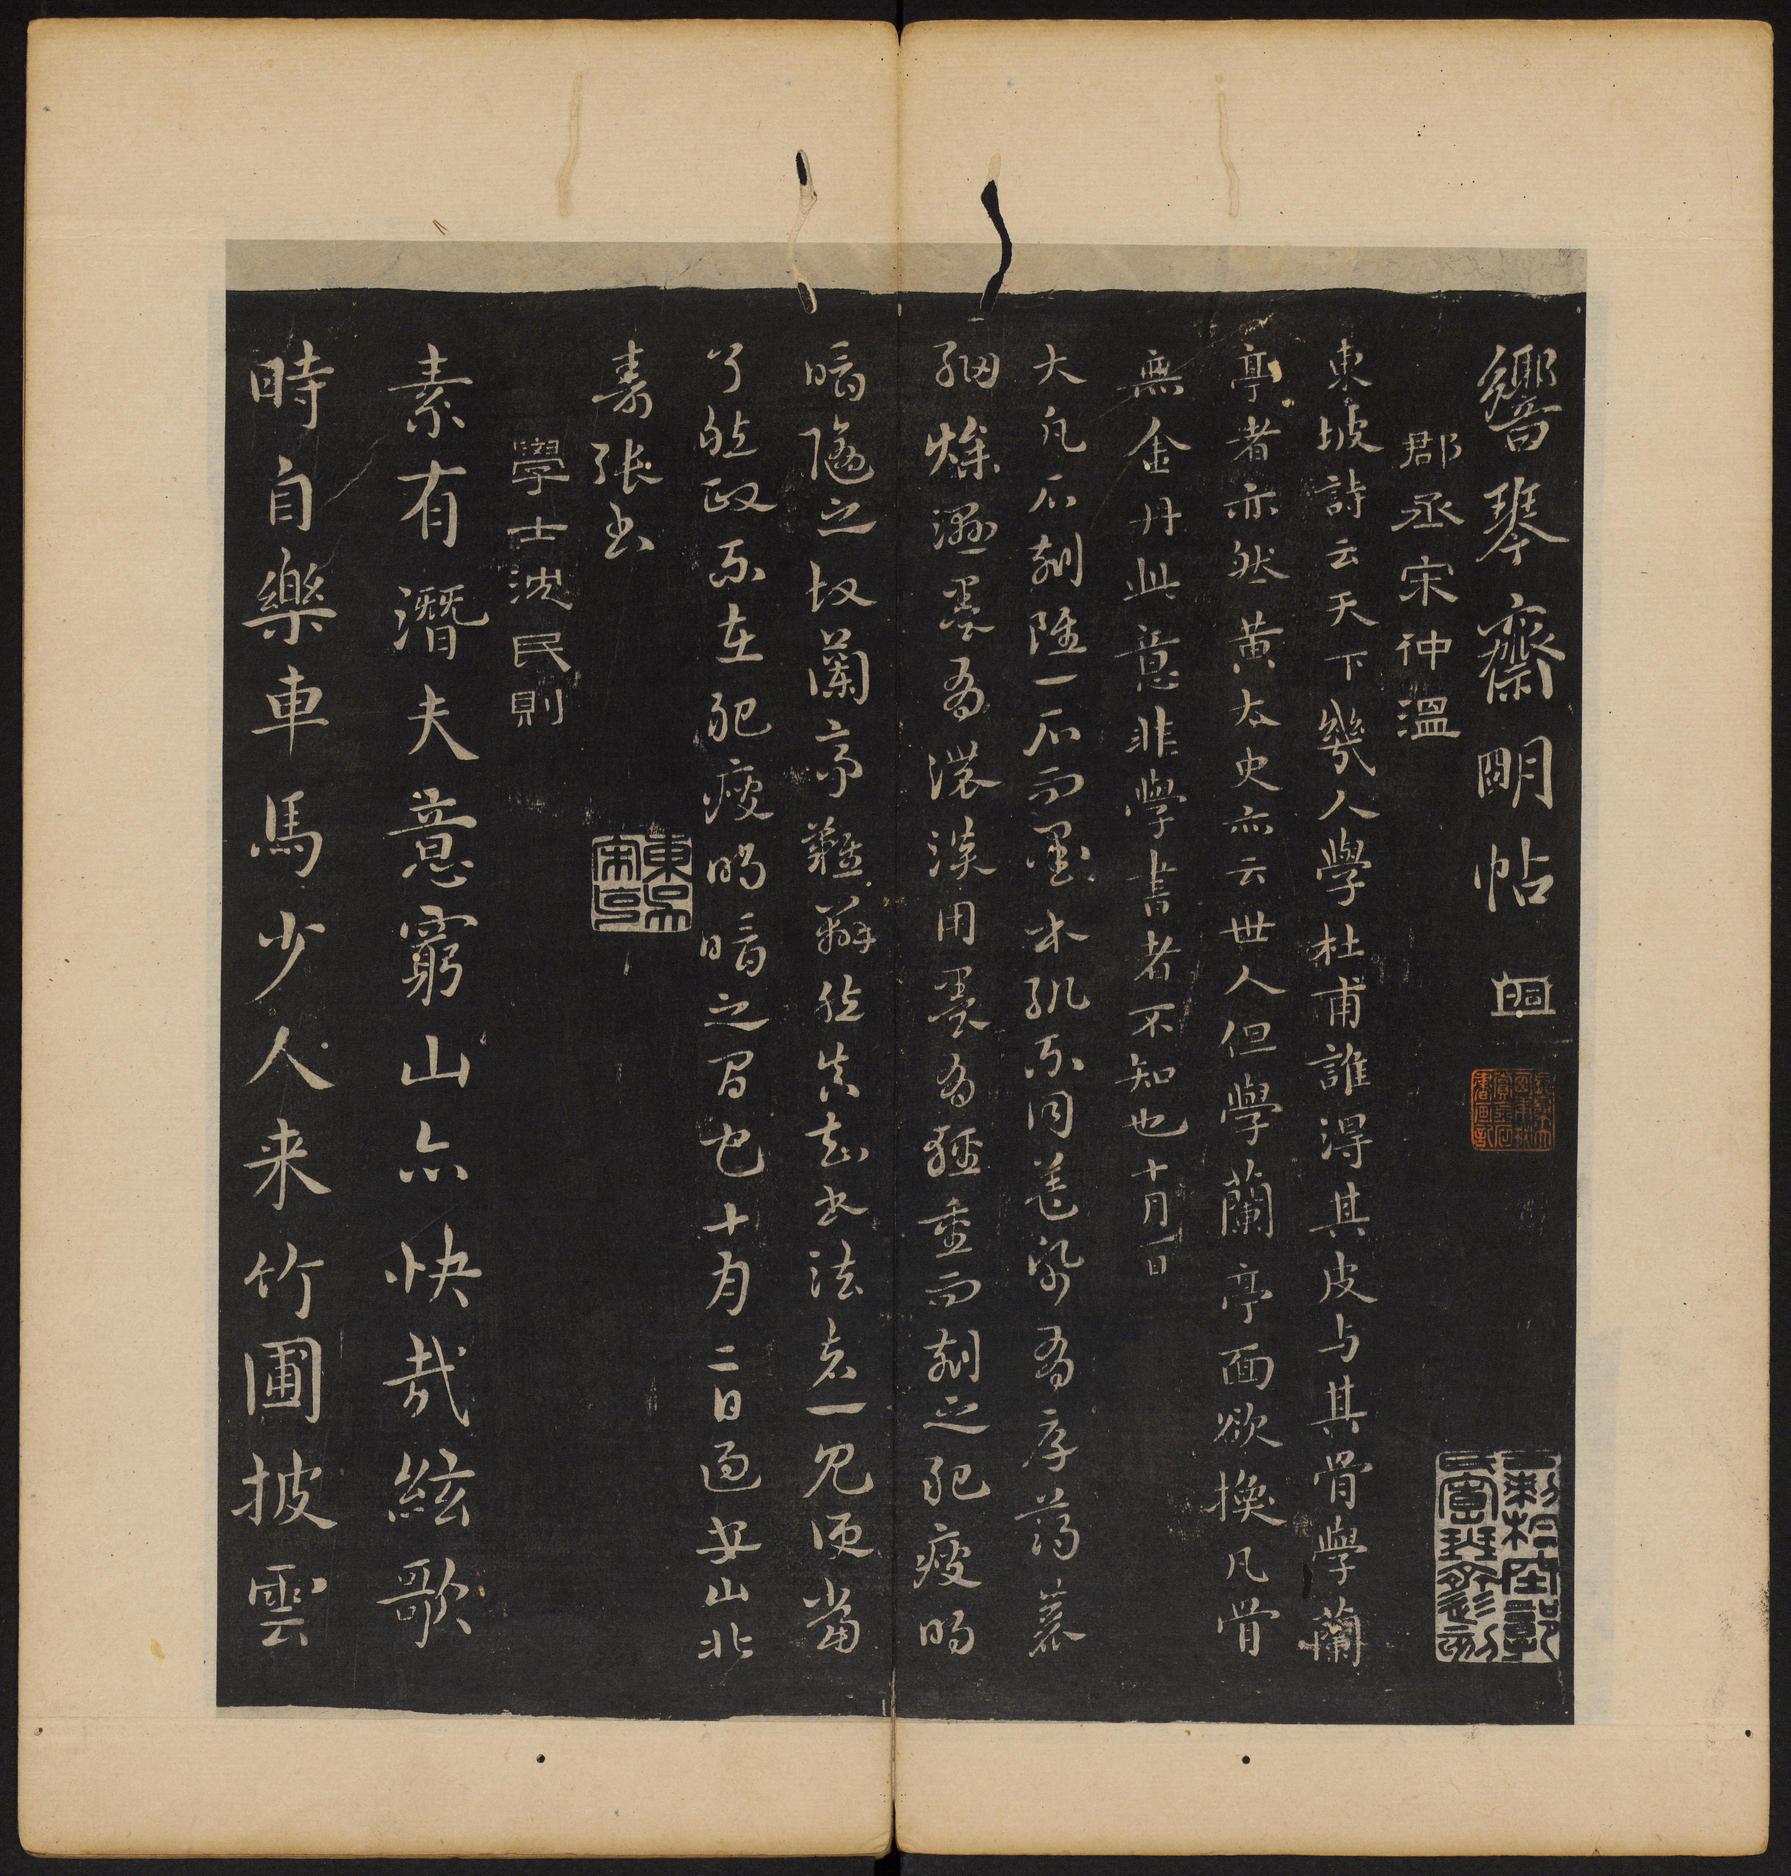 響琴齋明帖
郡丞宋仲溫
東坡詩云天下幾人學杜甫誰得其皮与其骨學蘭
亭者亦然黃太史亦云世人但學蘭亭面欲換凡骨
無金丹此意非學書者不知也十月一日
大凡石刻雖一石而墨本輒不同蓋紙有厚薄麁
細燥濕墨有濃淡用墨有輕重而刻之肥瘦明
暗隨之故蘭亭難辯然真知書法者一見便當
了然政不在肥瘦明暗之間也十月二日過安山北
壽張書
東吳宋克
學士沈民則
素有潛夫意窮山亦快哉絃歌
時自樂車馬少人来竹圃披雲